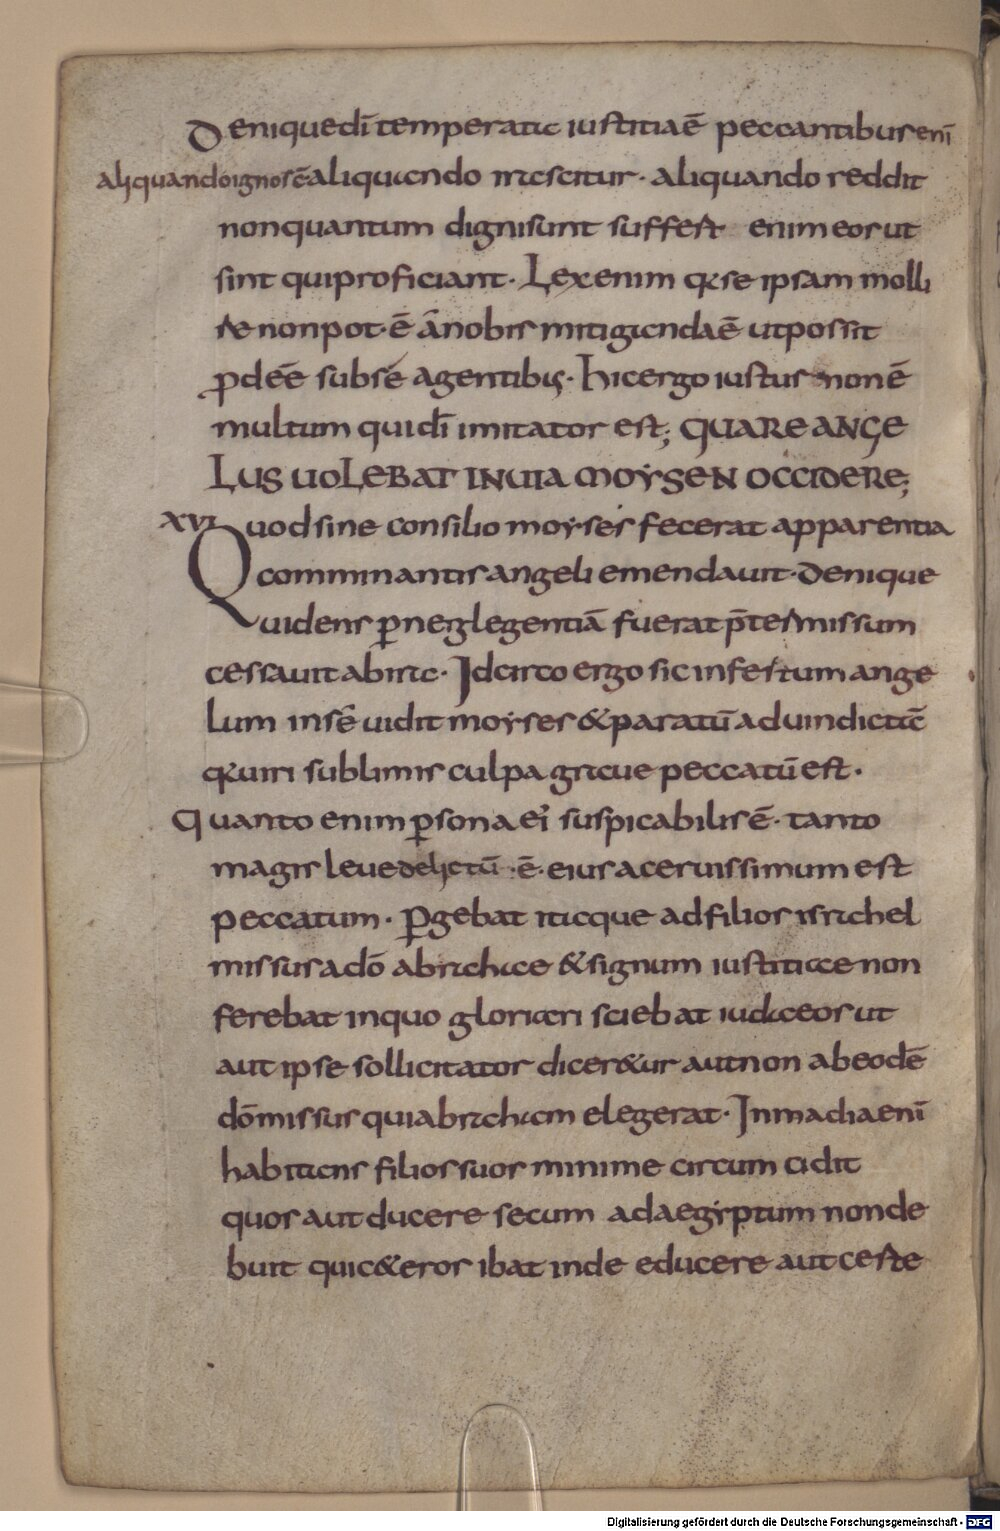 Denique dī temperata iustitia ē peccantibus enī
aliquando ignoscē aliquando irascitur · aliquando reddit
non quantum digni sunt suffest enim eos ut
sint qui proficiant · Lex enim q se ipsam molli
re non pot · ē ā nobis mitiganda ē ut possit
pdeē sub sē agentibus · hic ergo iustus non ē
multum qui dī imitator est; QUARE ANGE
LUS UOLEBAT IN UIA MOYSEN OCCIDERE;
XVI Quod sine consilio moyses fecerat apparentia
comminantis angeli emendauit · denique
uidens p neglegentiā fuerat p̄termissum
cessauit ab ira · Idcirco ergo sic infestum ange
lum in sē uidit moyses & paratū ad uindictā
q uiri sublimis culpa graue peccatū est ·
Quanto enim psona eī suspicabilis ē · tanto
magis leue delictū · ē · eius aceruissimum est
peccatum · Pgebat itaque ad filios israhel
missus a dō abrahae & signum iustitiae non
ferebat in quo gloriari sciebat iudaeos ut
aut ipse sollicitator dicer&ur aut non ab eodē
dō missus qui abraham elegerat · In madia enī
habitans filios suos minime circumcidit
quos aut ducere secum ad aegyptum non de
buit qui c&eros ibat inde educere aut certe